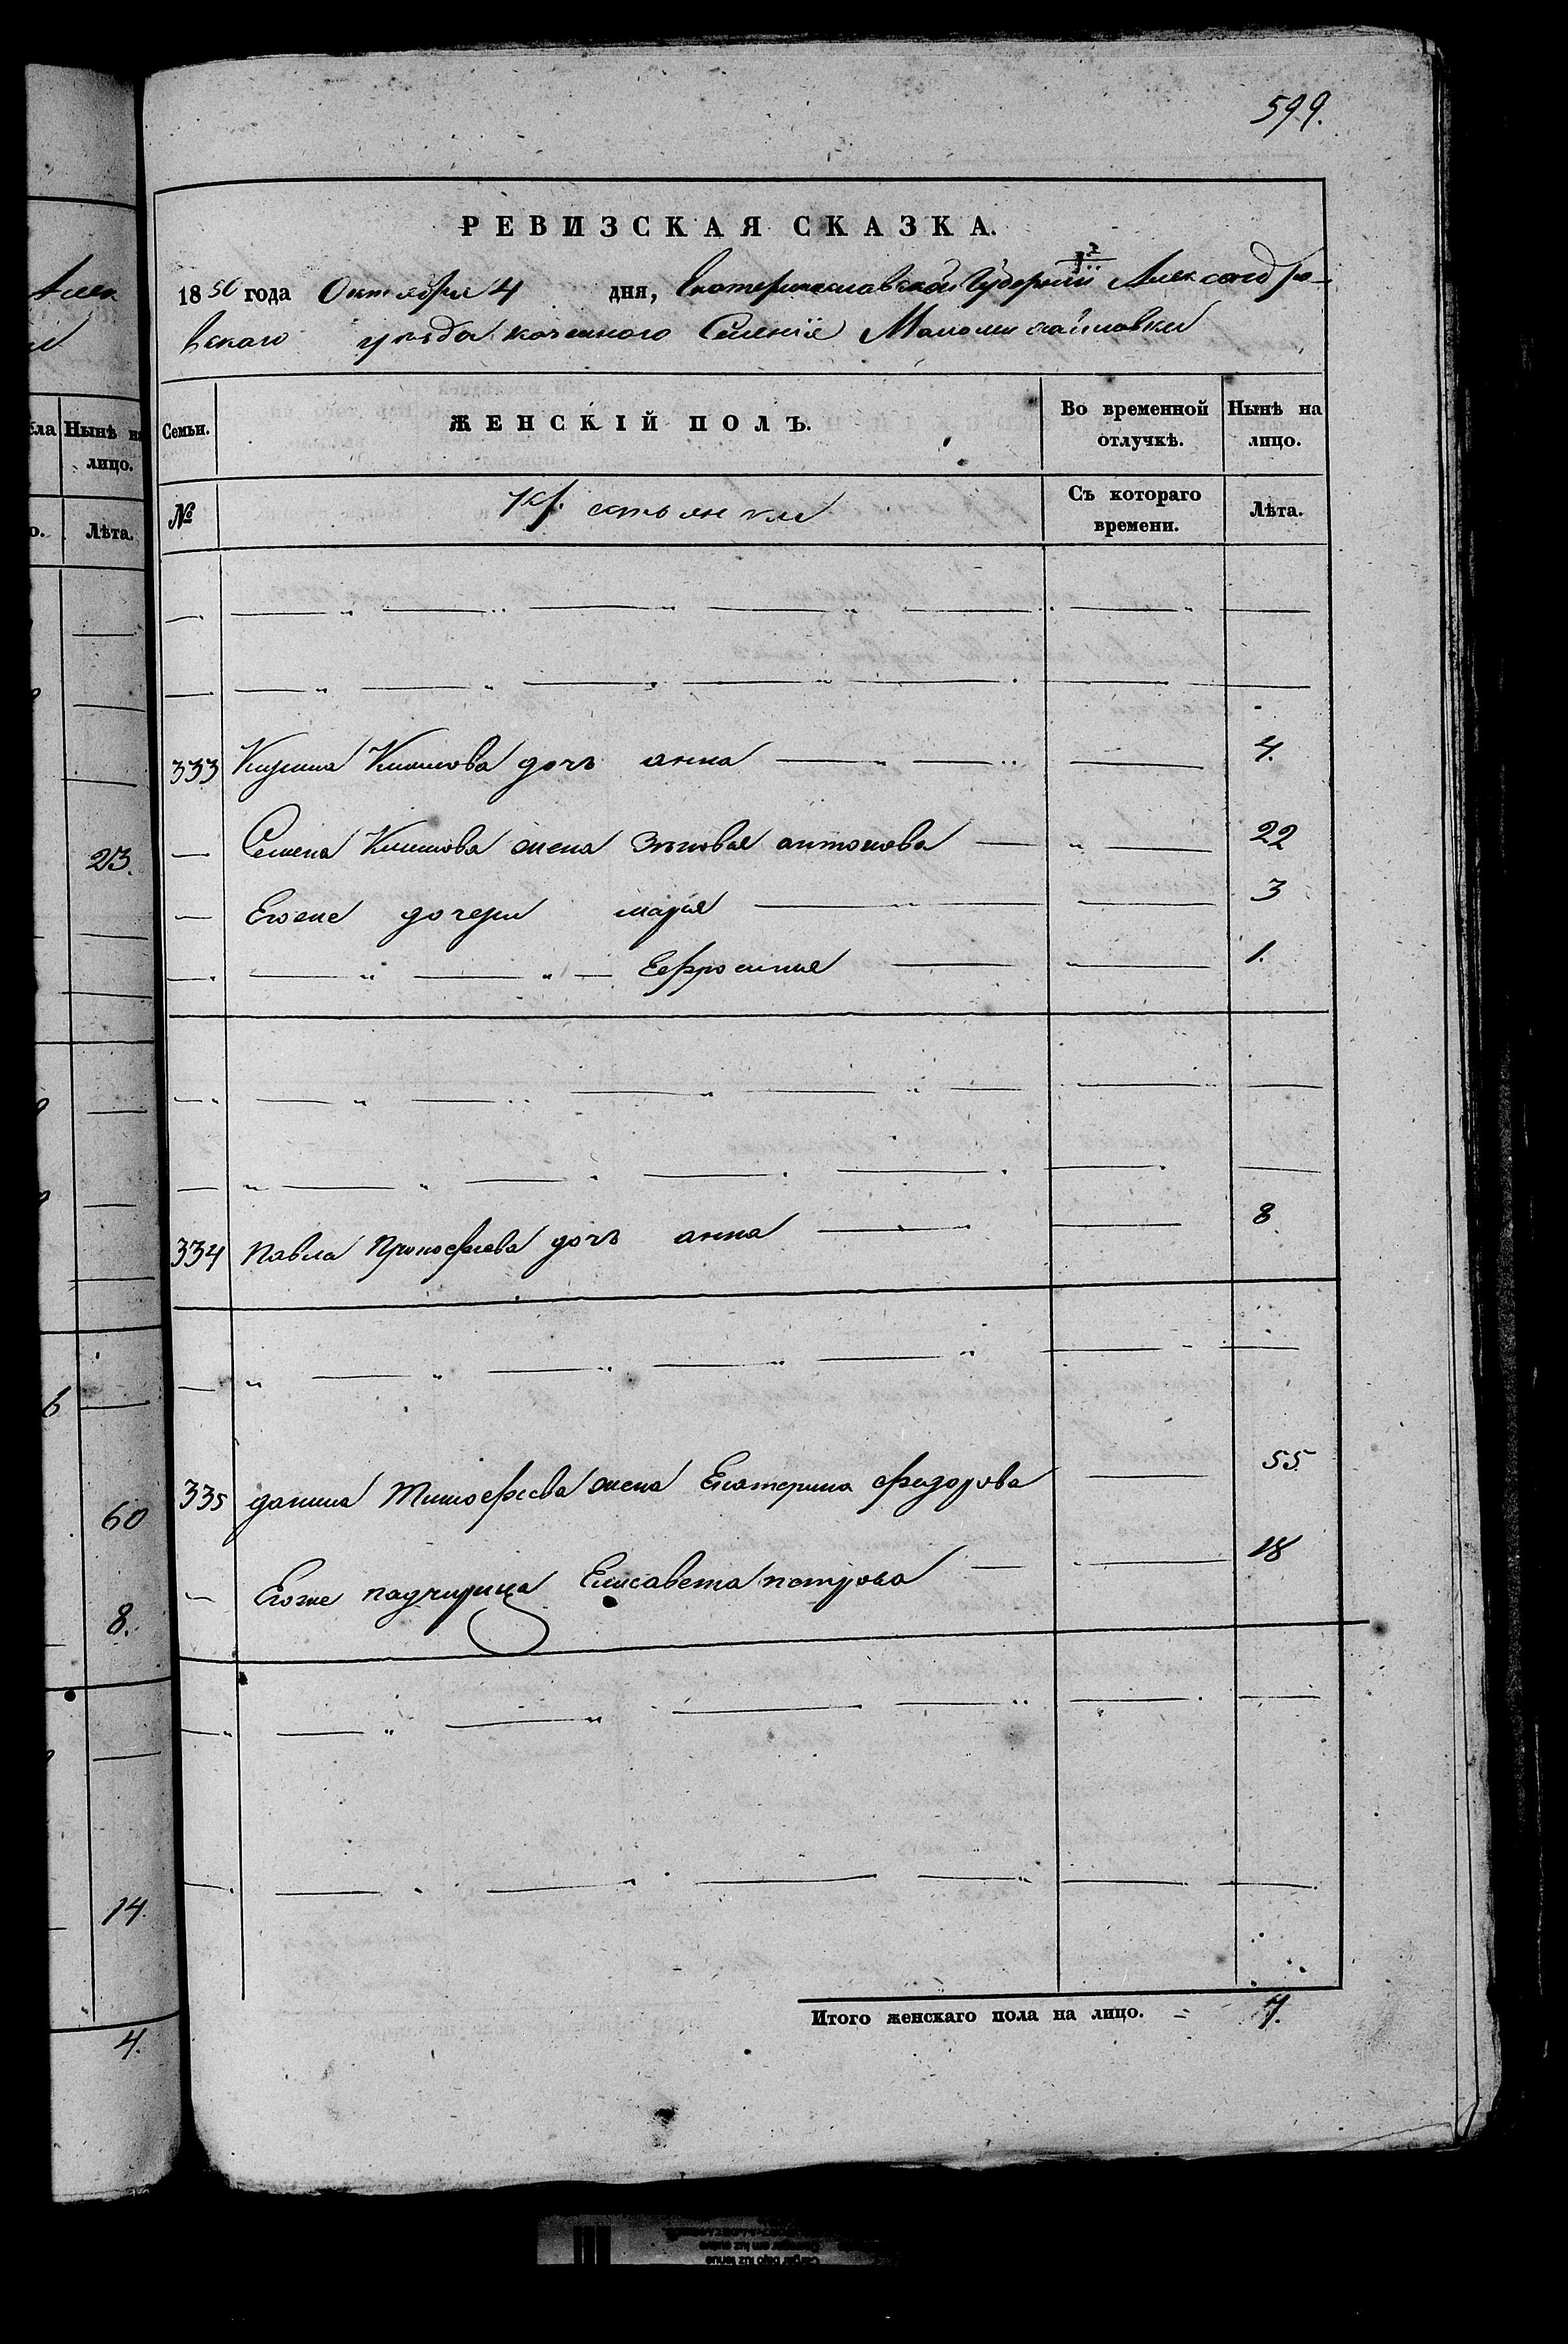 599.
РЕВИЗСКАЯ СКАЗКА.
1850 года Октября 4 дня, Екатеринославской Губернии Александро-
вскаго уезда казенного Селения Маломихайловки
Семьи.
ЖЕНСКІЙ ПОЛЪ.
Во временной отлучкѣ.
Нынѣ на лицо.
№
Крестьянки
Съ котораго времени.
Лѣта.
333 Климова дочь анна 4.
Семена Климова жена Зеновья антонова 22
Егоже дочери марья 3
Ефросинья 1.
334 Павла Прокофьева дочь анна 8
335 данила Тимофеева жена Екатерина Федорова 55
Егоже падчирица Елисавета петрова 18
Итого женскаго пола на лицо. = 7.
Нынѣ на
лицо.
Лѣта.
23.
60
8.
14.
4.